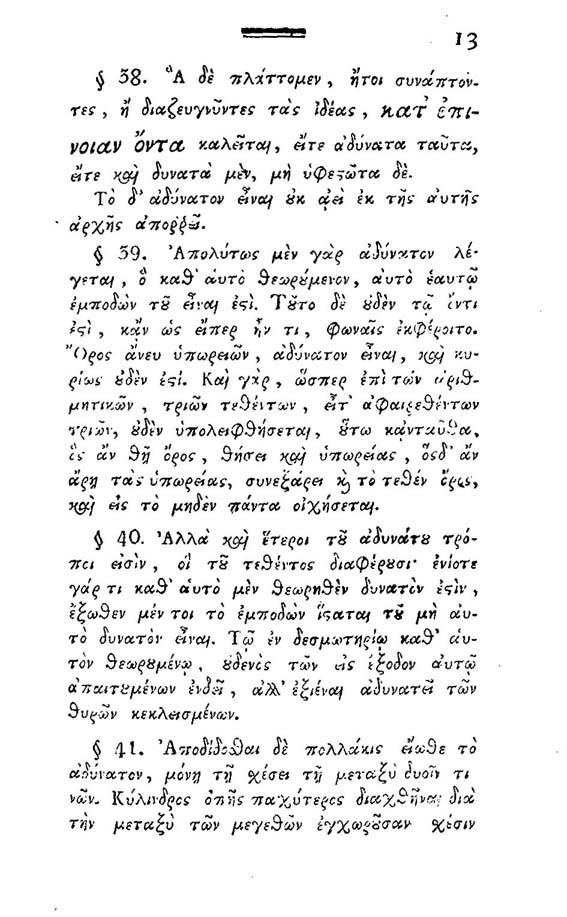 13
§ 38. Ἃ δὲ πλάττομεν, ἤτοι συνάπτον-
τες, ἢ διαζευγνῦντες τὰς ἰδέας, κατ᾽ ἐπι-
νοιαν ὄντα καλεῖται, εἴτε ἀδύνατα ταῦτα,
εἴτε καὶ δυνατὰ μὲν, μὴ ὑφεστῶτα δέ.
Τὸ δ᾽ ἀδύνατον εἶναι οὐκ ἀεὶ ἐκ τῆς αὐτῆς
ἀρχῆς ἀποῤῥεῖ.
§ 39. Ἀπολύτως μὲν γὰρ ἀδύνατον λέ-
γεται, ὃ καθ᾽ αὑτὸ θεωρούμενον, αὐτὸ ἑαυτῷ
ἐμποδὼν τοῦ εἶναι ἐστί. Τοῦτο δὲ οὐδὲν τῷ ὄντι
ἐστὶ, κἂν ὡς εἴπερ ἦν τι, φωναῖς ἐκφέροιτο.
Ὄρος ἄνευ ὑπωρειῶν, ἀδύνατον εἶναι, καὶ κυ-
ρίως οὐδέν ἐστί. Καὶ γὰρ, ὥσπερ ἐπὶ τῶν ἀριθ-
μητικῶν, τριῶν τεθέντων, εἶτ᾽ ἀφαιρεθέντων
τριῶν, οὐδὲν ὑπολειφθήσεται, οὕτω κἀνταῦθα,
ὃς ἂν θῇ ὄρος, θήσει καὶ ὑπωρείας, ὃς δ᾽ ἂν
ἄρῃ τὰς ὑπωρείας, συνεξάρει καὶ τὸ τεθὲν ὄρος,
καὶ εἰς τὸ μηδὲν πάντα οἰχήσεται.
§ 40. Ἀλλὰ καὶ ἕτεροι τοῦ ἀδυνάτου τρό-
ποι εἰσὶν, οἳ τοῦ τεθέντος διαφέρουσι· ἐνίοτε
γάρ τι καθ᾽ αὑτὸ μὲν θεωρηθὲν δυνατὸν ἐστὶν,
ἔξωθεν μέν τοι τὸ ἐμποδὼν ἵσταται τοῦ μὴ αὐ-
τὸ δυνατὸν εἶναι. Τῷ ἐν δεσμωτηρίῳ καθ᾽ αὑ-
τὸν θεωρουμένῳ, οὐδενὸς τῶν εἰς ἔξοδον αὐτῷ
ἀπαιτουμένων ἐνδεῖ, ἀλλ᾽ ἐξιέναι ἀδυνατεῖ τῶν
θυρῶν κεκλεισμένων.
§ 41. Ἀποδίδοσθαι δὲ πολλάκις εἴωθε τὸ
ἀδύνατον, μόνῃ τῇ σχέσει τῇ μεταξὺ δυοῖν τι
νῶν. Κύλινδρος ὀπῆς παχύτερος διαχθῆναι διὰ
τὴν μεταξὺ τῶν μεγεθῶν ἐγχωροῦσαν σχέσιν